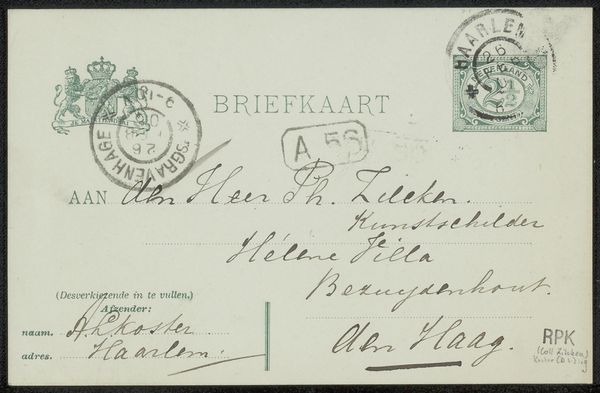 HAARLEM
26
NEDERLAND
2½
CENT
'SGRAVENHAGE
26
BRIEFKAART
A 56
AAN den Heer Ph. Zilcken.
Kunstschilder
Hélène Villa
Bezuydenhout.
den Haag.
(Desverkiezende in te vullen.)
Afzender:
naam. AL Koster
adres. Haarlem.
RPK
(Coll Zilcken)